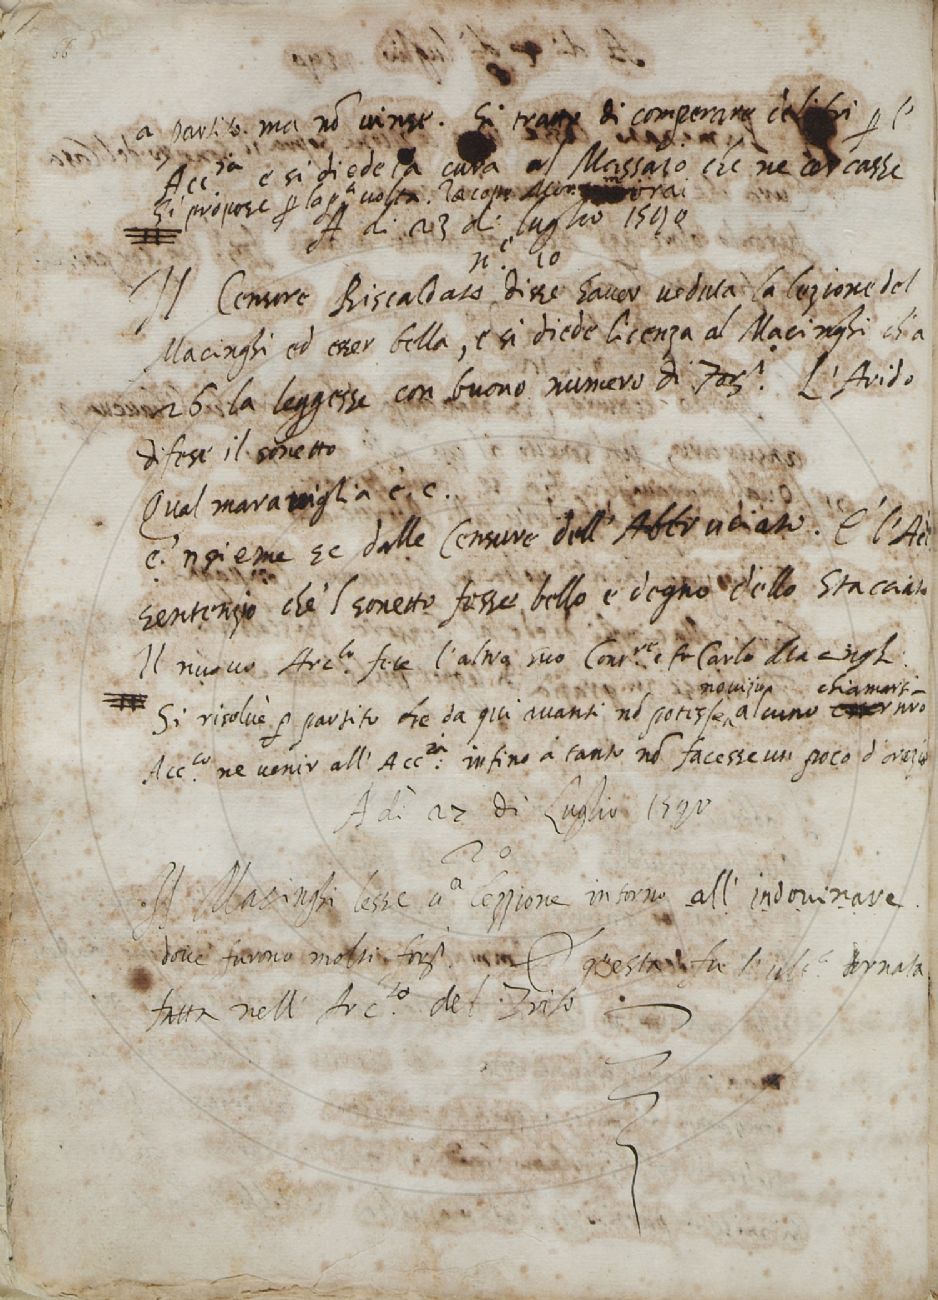 66
a partito. ma nõ vinse. Si trattò di comperare de libri p l'
Acc.ia e si diede la cura al Massaio che ne cercasse
Si propose p la p.a volta. Iacopo
A di 23 di luglio 1590
n.° 20
Il Censore Riscaldato disse haver veduta la lezione del
Macinghi ed esser bella, e si diede licenza al Macinghi ch' a
26 la leggesse con buono numero di Fors.i L'Arido
difese il sonetto
Qual maraviglia è. c.
e 'nsieme se dalle Censure dell' Abbruciato. E l'Arc
sentenziò che 'l sonetto fosse bello e degno dello Stacciato
Il nuovo Arc.lo fece l'altro suo Cons.re e fu Carlo Macingh.
Si risolvè p partito che da qui avanti nõ potesse alcuno novizio chiamarsi
Acc.co ne venir all' Acc.ia infino à tanto nõ facesse un poco d'oraz
A di 27 di Luglio 1590
20
Il Macinghi lesse u.a lezzione intorno all' indovinare.
dove furono molti fors.i E questa fu l' ult.a tornata
fatta nell' Arc.to del Trito